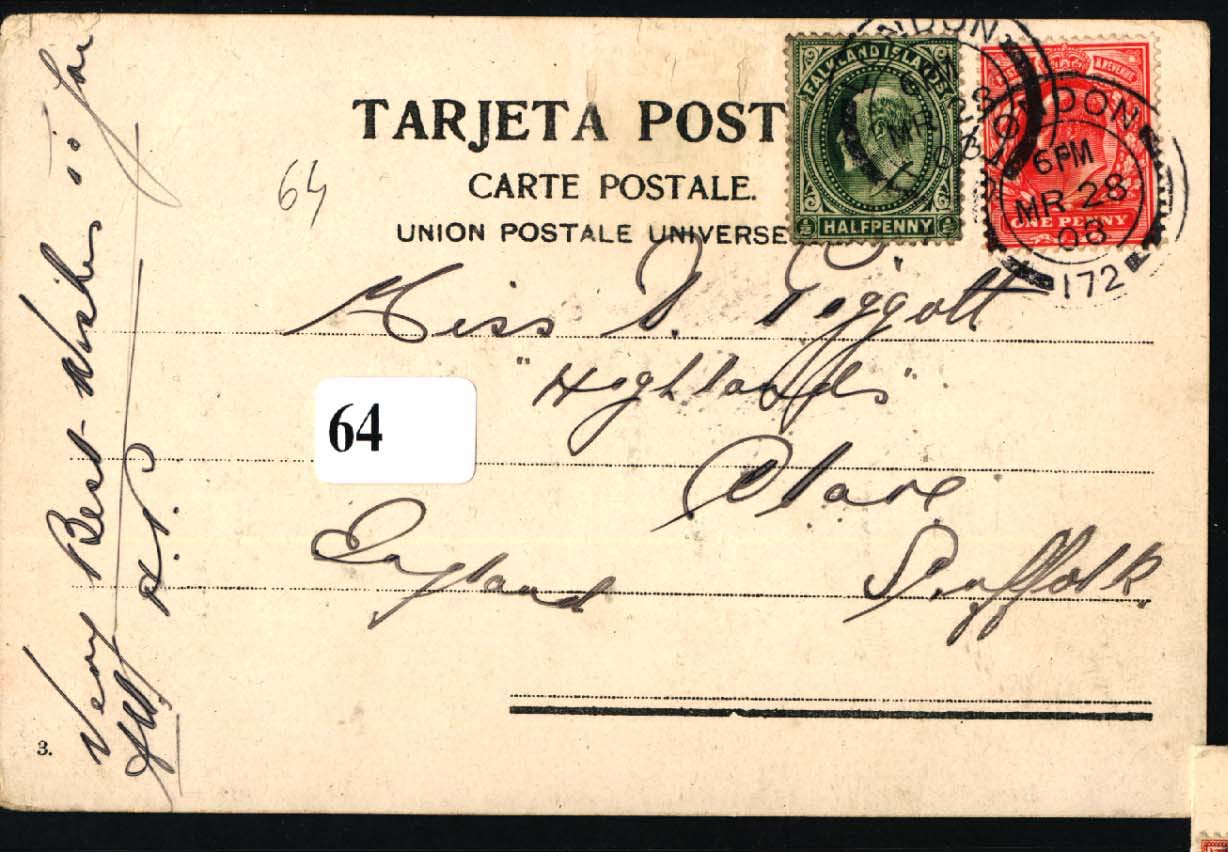 TARJETA POST
CARTE POSTALE.
UNION POSTALE UNIVERSE
FALKLAND ISLANDS
HALFPENNY
& REVENUE
ONE PENNY
LONDON
MR 28
08
LONDON
6PM
MR 28
08
172
64
Miss D. Piggott
"Highlands"
64
Clare
England Suffolk
Very Best Wishes
3.